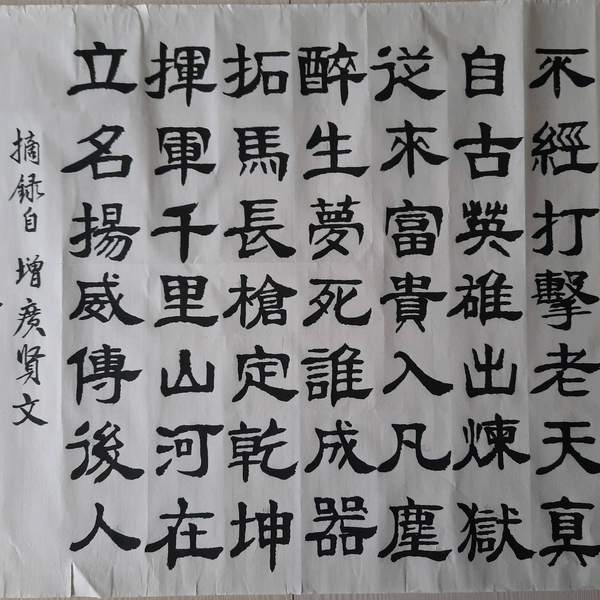 不經打擊老天真
自古英雄出煉獄
從來富貴入凡塵
醉生夢死誰成器
拓馬長槍定乾坤
揮軍千里山河在
立名揚威傳後人
摘録自增廣贤文